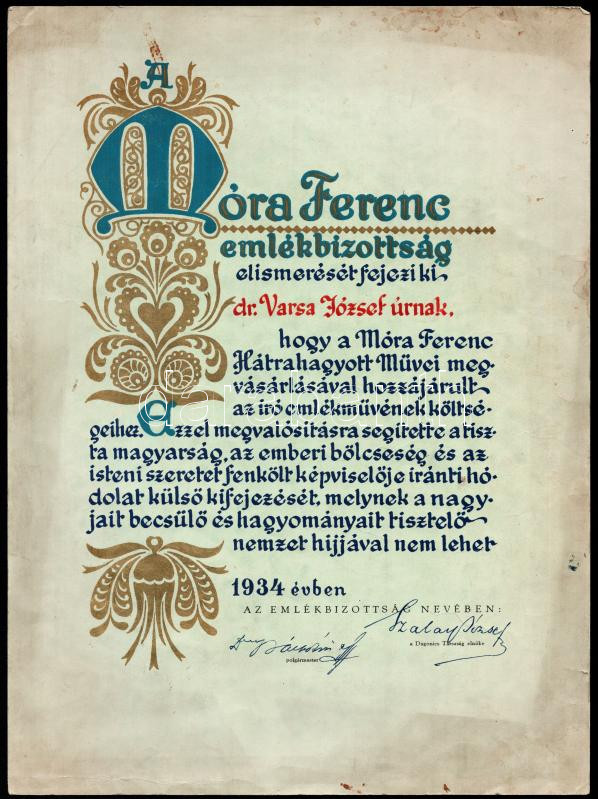 A
Móra Ferenc
emlékbizottság
elismerését fejezi ki
dr. Varsa József úrnak,
hogy a Móra Ferenc
Hátrahagyott Művei meg-
vásárlásával hozzájárult
az iró emlékművének költsé-
geihez. Ezzel megvalósitásra segitette a tisz-
ta magyarság, az emberi bölcseség és az
isteni szeretet fenkölt képviselője iránti hó-
dolat külső kifejezését, melynek a nagy-
jait becsülő és hagyományait tisztelő
nemzet hijjával nem lehet
1934 évben
AZ EMLÉKBIZOTTSÁG NEVÉBEN:
Szalay József
a Dugonics Társaság elnöke
polgármester